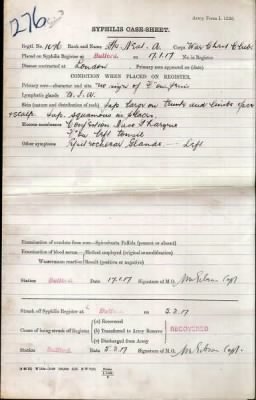 276
Army Form I. 1236.
SYPHILIS CASE-SHEET.
Regtl. No. Rank and Name A. Corps War Chest Club
Placed on Syphilis Register at Bulford. on 17.1.17 No. in Register
Disease contracted at London Primary sore appeared on (date)
CONDITION WHEN PLACED ON REGISTER.
Primary sore—character and site no sign of
Lymphatic glands
Skin (nature and distribution of rash) Pap. large on trunk and limbs face
& scalp. Pap. squamous in places.
Mucous membranes Congestion fauces & Pharynx
on left tonsil
Other symptoms Glands - Left
Examination of exudate from sore—Spirochaeta Pallida (present or absent)
Examination of blood serum—Method employed (original or modification)
Wassermann reaction Result (positive or negative)
Station Bulford Date 17.1.17 Signature of M.O. Capt
Struck off Syphilis Register at Bulford. on 5.2.17
Cause of being struck off Register
(a) Recovered
(b) Transferred to Army Reserve
(c) Discharged from Army
RECOVERED
Station Bulford. Date 5.2.17 Signature of M.O. Capt.